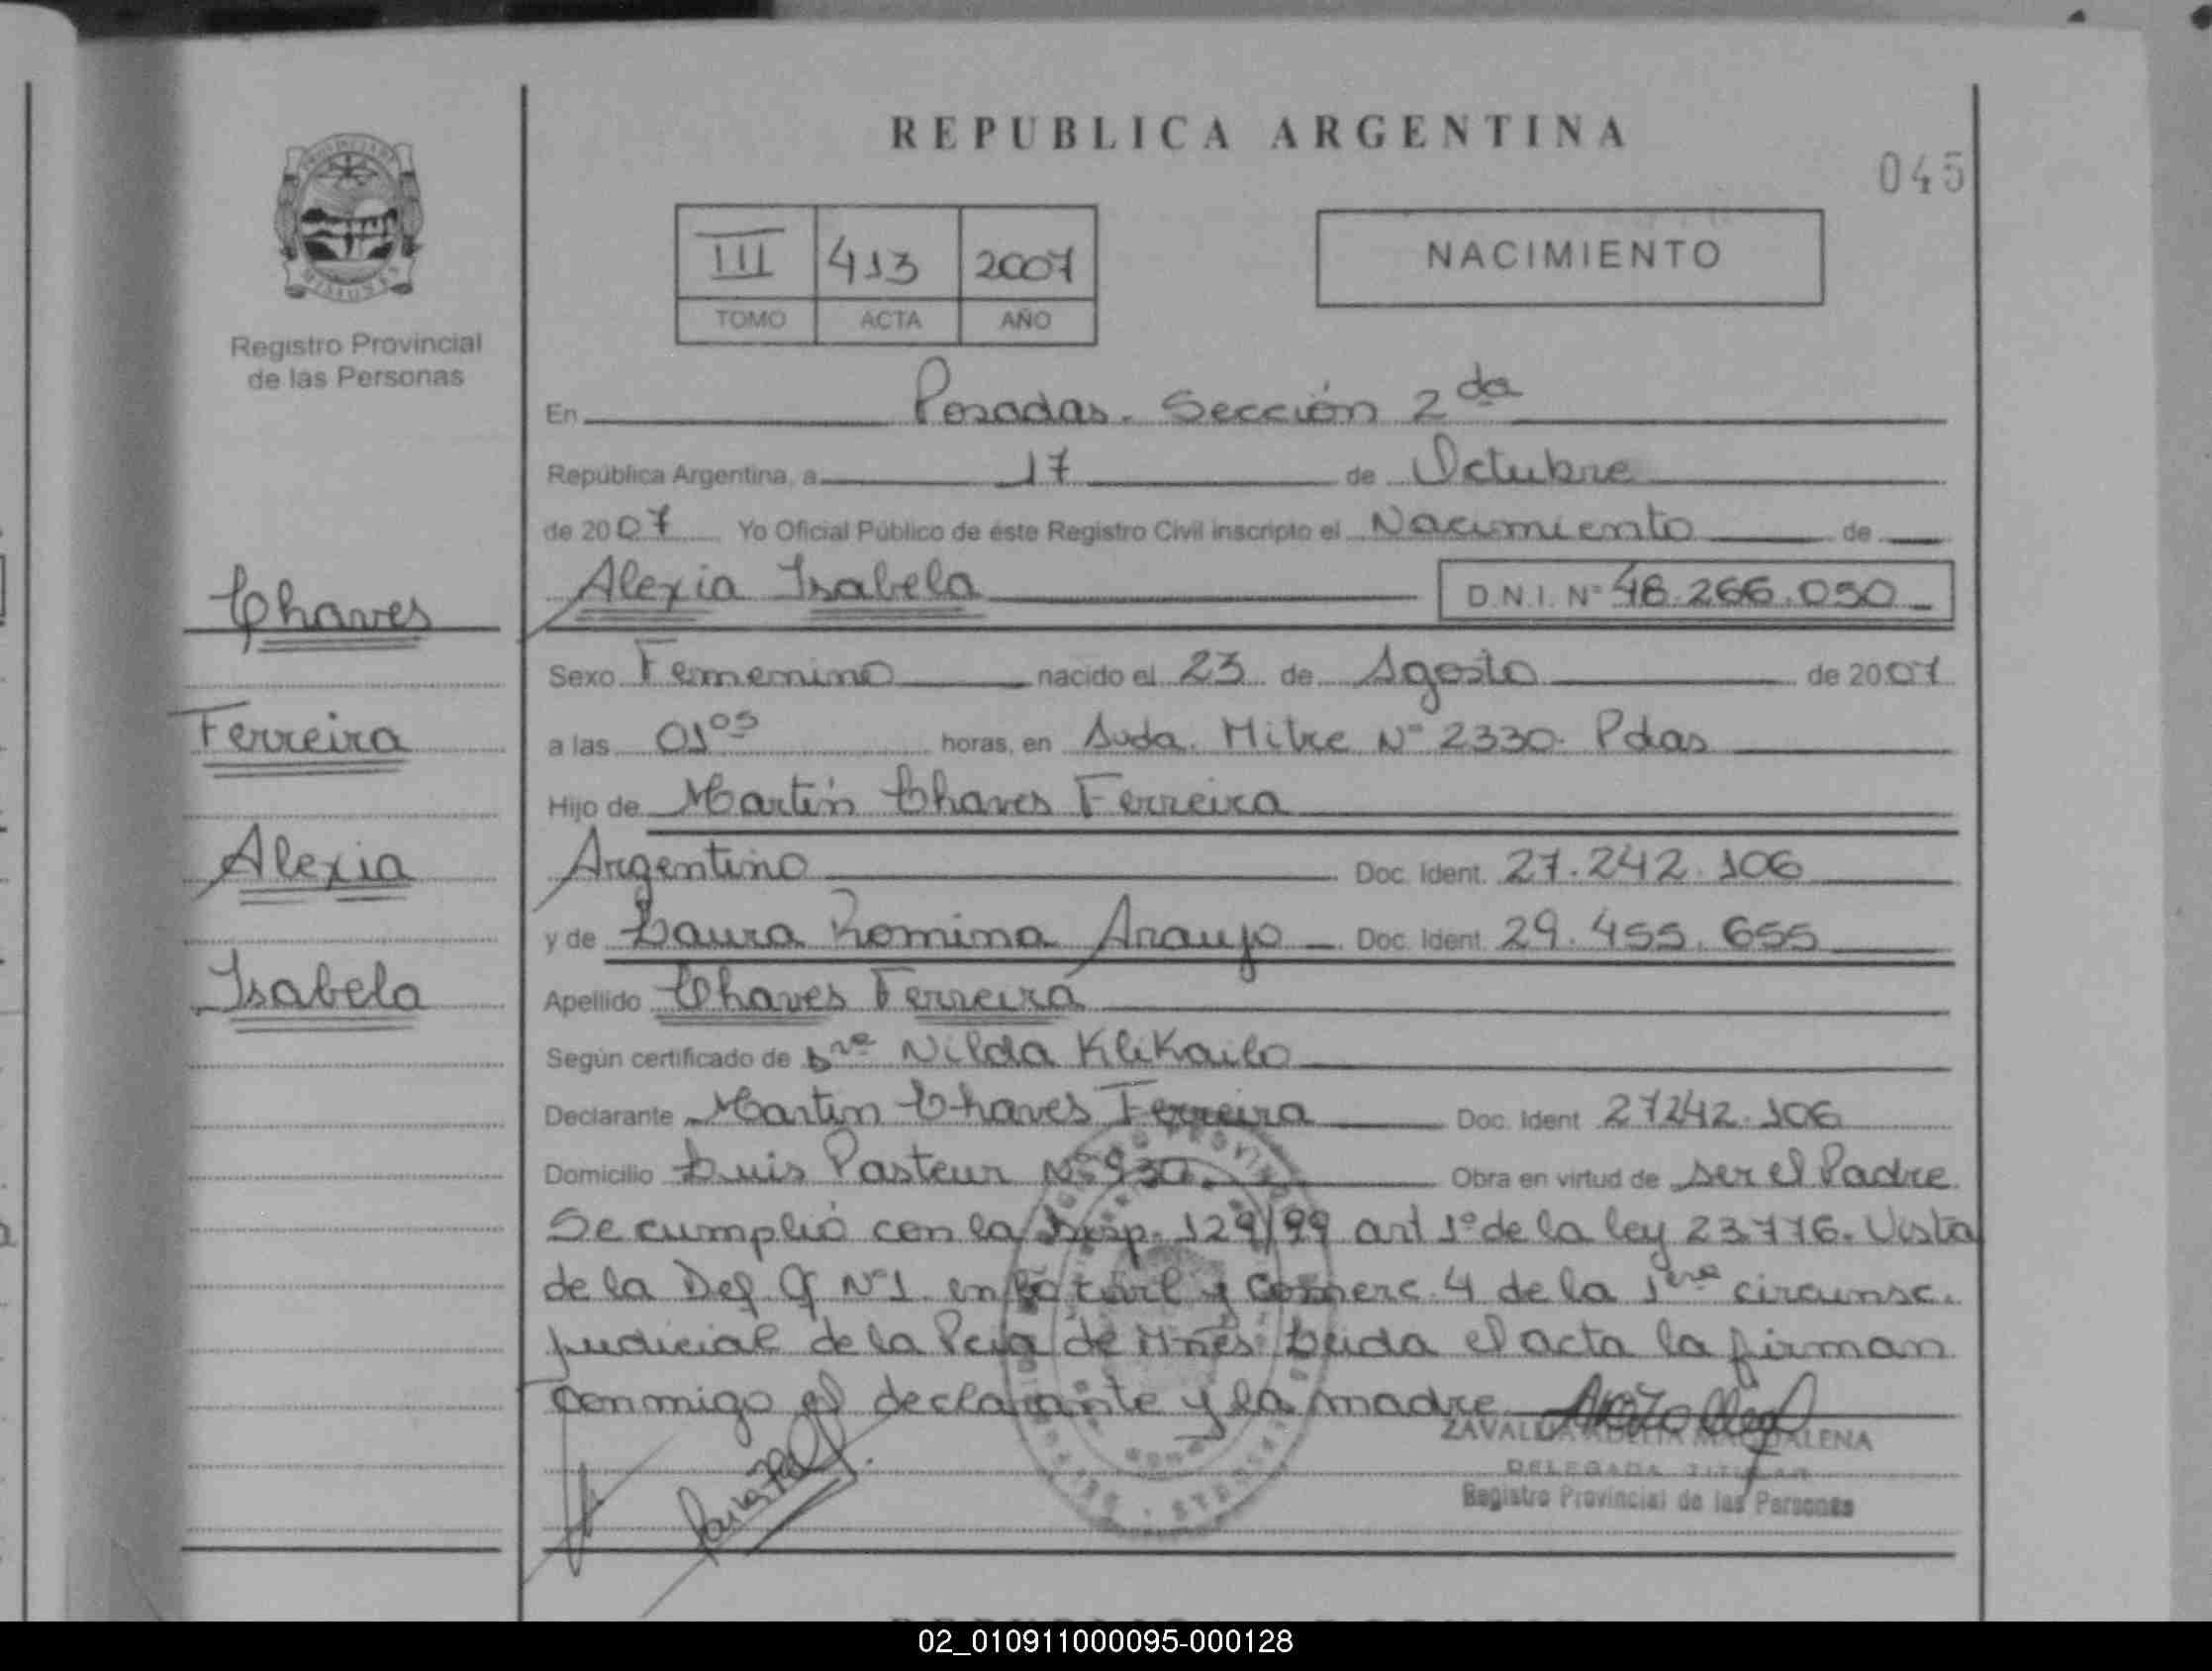 REPUBLICA ARGENTINA
045
PROVINCIA DE
MISIONES
Registro Provincial
de las Personas
III 413 2007
TOMO ACTA AÑO
NACIMIENTO
En Posadas. Sección 2da
República Argentina, a 17 de Octubre
de 2007 Yo Oficial Público de éste Registro Civil inscripto el Nacimiento de
Chaves
Alexia Isabela D.N.I. Nº 48.266.050
Sexo Femenino nacido el 23 de Agosto de 2007
Ferreira
a las 01 05 horas, en Avda. Mitre Nº 2330. Pdas
Hijo de Martín Chaves Ferreira
Alexia
Argentino Doc. Ident. 27.242.106
y de Laura Romina Araujo Doc. Ident. 29.455.655
Isabela
Apellido Chaves Ferreira
Según certificado de Dra Nilda Klikailo
Declarante Martin Chaves Ferreira Doc. Ident 27242.106
Domicilio Luis Pasteur Nº 930. Obra en virtud de ser el Padre
Se cumplió con la Disp. 129/99 art 1º de la ley 23.776. Vista
de la Def. Of Nº1. en lo civil y Comerc. 4 de la 1era circunsc.
judicial de la Pcia de Mnes. Leida el acta la firman
conmigo el declarante y la madre
ZAVALLA ADELIA MAGDALENA
DELEGADA TITULAR
Registro Provincial de las Personas
02_010911000095-000128